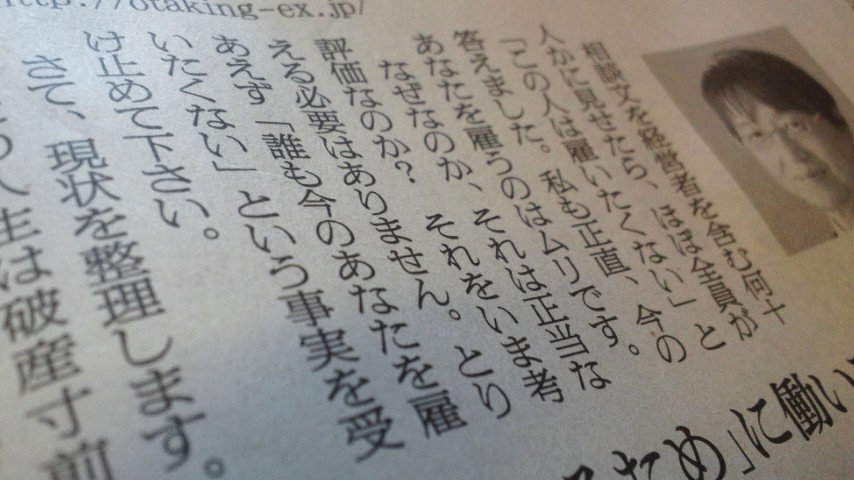 http://otaking-ex.jp/
相談文を経営者を含む何十
人かに見せたら、ほぼ全員が
「この人は雇いたくない」と
答えました。私も正直、今の
あなたを雇うのはムリです。
なぜなのか、それは正当な
評価なのか? それをいま考
える必要はありません。とり
あえず「誰も今のあなたを雇
いたくない」という事実を受
け止めて下さい。
さて、現状を整理します。
人生は破産寸前
ため」に働い